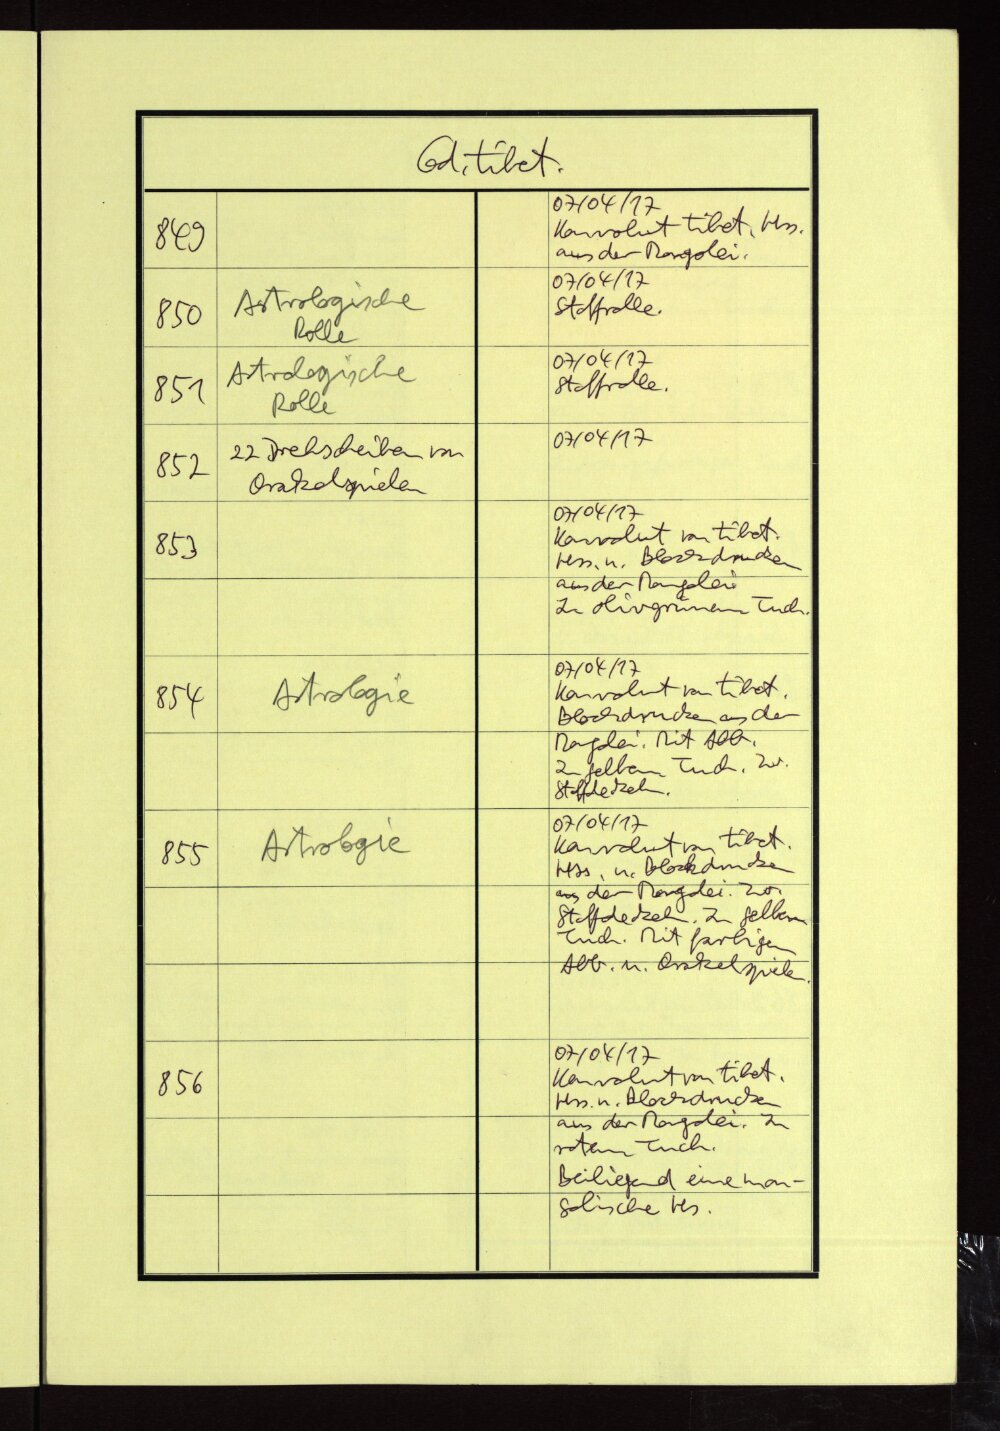 Cod. tibet.
849
07/04/17
Konvolut tibet. Hss.
aus der Mongolei.
850
Astrologische
Rolle
07/04/17
Stoffrolle.
851
Astrologische
Rolle
07/04/17
Stoffrolle.
852
22 Drehscheiben von
Orakelspielen
07/04/17
853
07/04/17
Konvolut von tibet.
Hss. u. Blockdrucken
aus der Mongolei
In olivgrünem Tuch.
854
Astrologie
07/04/17
Konvolut von tibet.
Blockdrucken aus der
Mongolei. Mit Abb.
In gelbem Tuch. Zw.
Stoffdeckeln.
855
Astrologie
07/04/17
Konvolut von tibet.
Hss. u. Blockdrucken
aus der Mongolei. Zw.
Stoffdeckeln. In gelbem
Tuch. Mit farbigen
Abb. u. Orakelspielen.
856
07/04/17
Konvolut von tibet.
Hss. u. Blockdrucken
aus der Mongolei. In
rotem Tuch.
Beiliegend eine mon-
golische Hs.